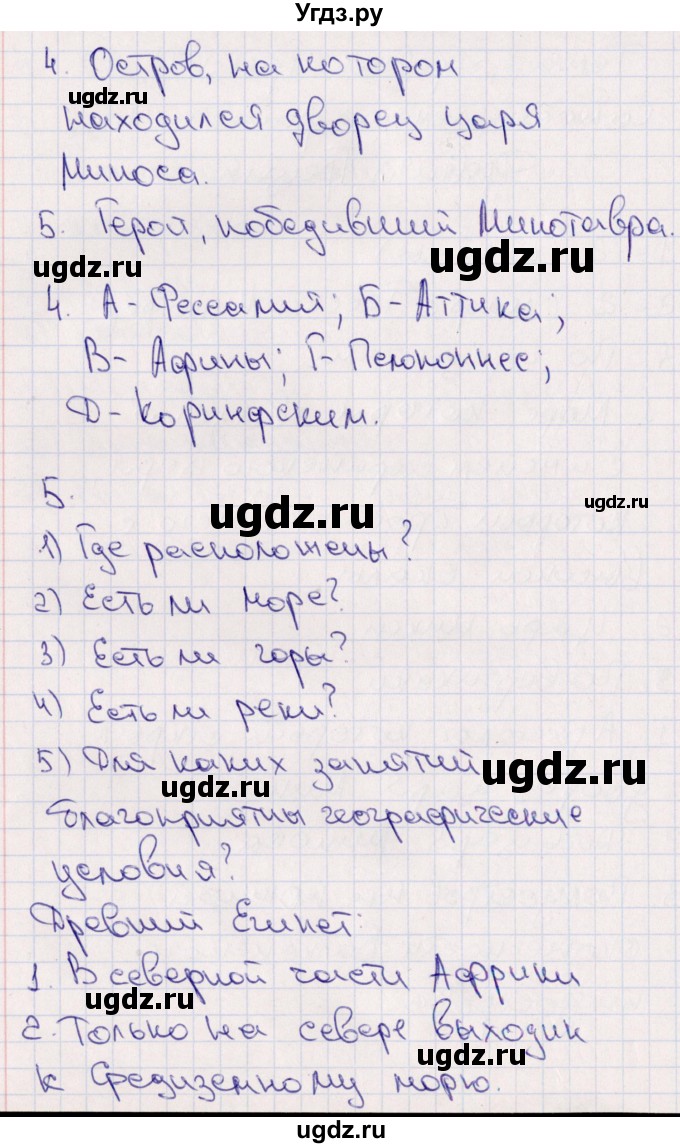 Угдз.ру
4. Остров, на котором
ugdz.ru
находился дворец царя
Миноса.
5. Герой, победивший Минотавра.
ugdz.ru
ugdz.ru
4. А - Фессалий; Б - Аттика;
В - Афины; Г - Пелопоннес;
Д - Коринфским.
5.
ugdz.ru
ugdz.ru
1) Где расположены?
2) Есть ли море?
3) Есть ли горы?
ugdz.ru
4) Есть ли реки?
5) Для каких занятий
ugdz.ru
ugdz.ru
благоприятны географические
условия?
Древний Египет:
1. В северной части Африки
ugdz.ru
2. Только на севере выходик
ugdz.ru
к Средизенному морю.
ugdz.ru